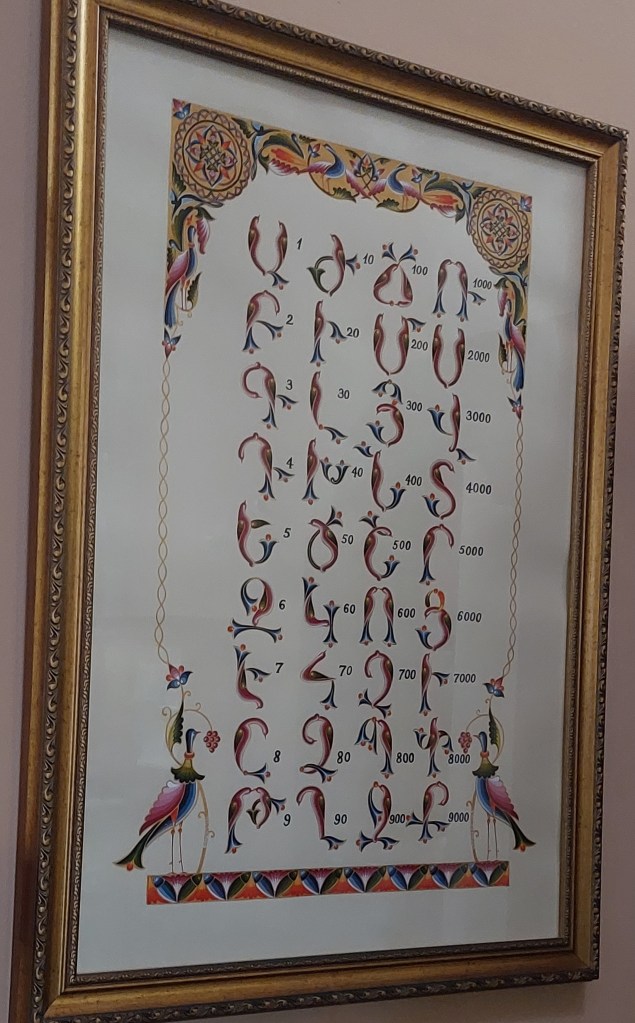 Ա 1 Ժ 10 Ճ 100 Ռ 1000
Բ 2 Ի 20 Մ 200 Ս 2000
Գ 3 Լ 30 Յ 300 Վ 3000
Դ 4 Խ 40 Ն 400 Տ 4000
Ե 5 Ծ 50 Շ 500 Ր 5000
Զ 6 Կ 60 Ո 600 Ց 6000
Է 7 Հ 70 Չ 700 Ւ 7000
Ը 8 Ձ 80 Պ 800 Փ 8000
Թ 9 Ղ 90 Ջ 900 Ք 9000